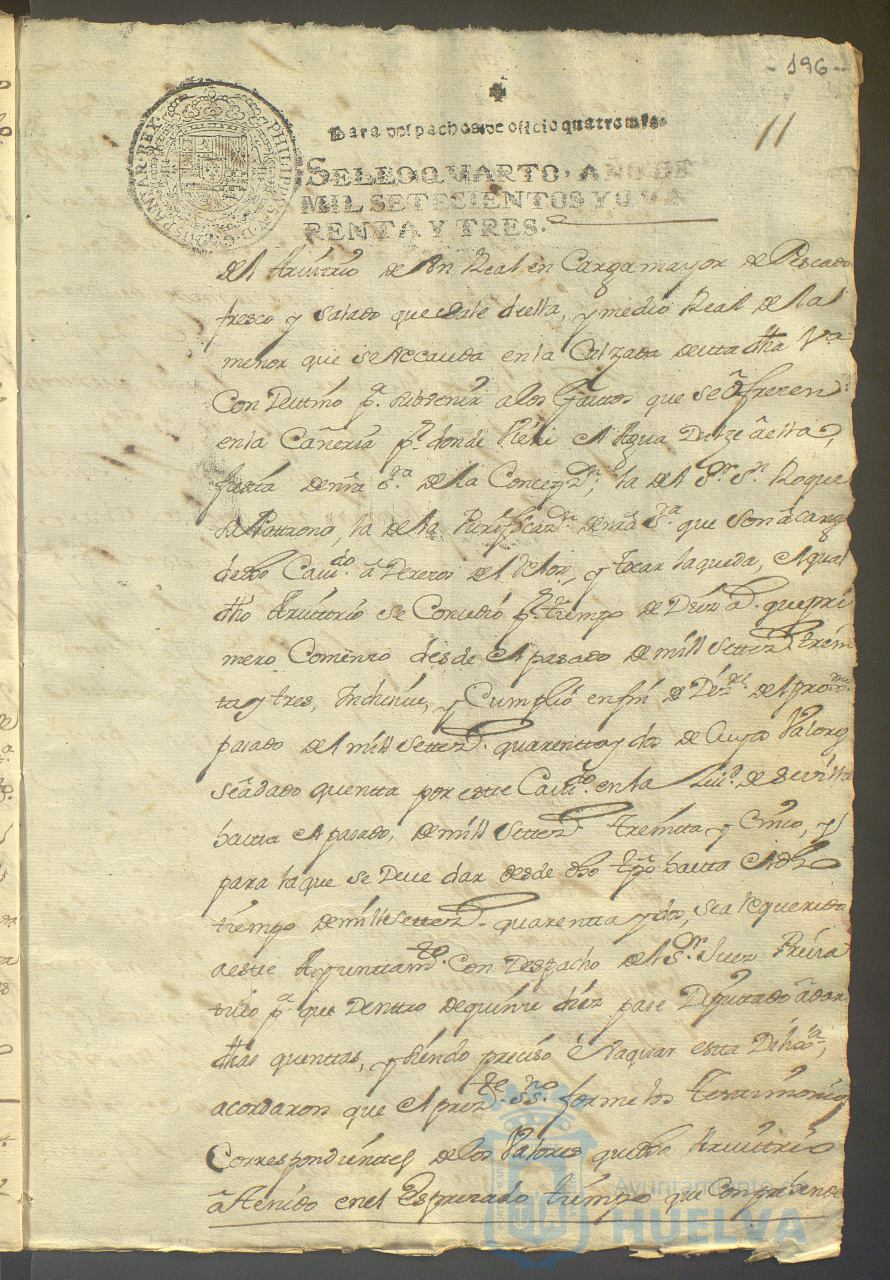 - 196 -
11
Para despachos de oficio quatro mrs.
SELLO QUARTO, AÑO DE
MIL SETECIENTOS Y QUA
RENTA Y TRES.
PHILIPPUS V D G HISPANIAR REX
del Aruitrio de Un Real en Carga mayor de Pescado
fresco y Salado que Sale della, y medio Real de la
menor que se Recauda en la Calzada de esta dha Va
Con Destino pa. subvenir a los Gastos que se ofreren
en la Cañeria pr. donde Viene el Agua Dulze a esta,
fiesta de nra Sra de la Concepzn, la del Sr. Sn Roque
su Pattrono, la de la Purificazn de nra Sra que son a cargo
de dho Cavdo. a Derezos del Relox, y tocar la queda, el qual
dho Aruitrio se Concedió pr. tiempo de Diez as. que pri
mero Comenzo desde el pasado de mill Settezs. trein
ta y tres, Inclusive, y Cumplió en fin de Dizre del proximo
pasado de mill Settezs. quarentta y dos de Cuyos Valores
se a dado quentta por este Cavdo. en la Ciud. de Sevilla
hasta el pasado, de mill Settezs. treinta y Cinco, y
para la que se Deve dar desde dho tpo hasta el dho
tiempo de mill Settezs. quarentta y dos, se a Requerido
a este Ayunttamto. Con Despacho del Sr. Juez Priva
tivo pa. que Dentro de quinze dias pase Diputado a dar
dhas quenttas, y siendo preciso evaquar esta Diliga,
acordaron que el preztte. ssno forme los Testimonios
Correspondientes de los Valores que dho Aruittrio
a tenido en el Espresado tiempo que Comprehende
Ayuntamiento de
HUELVA